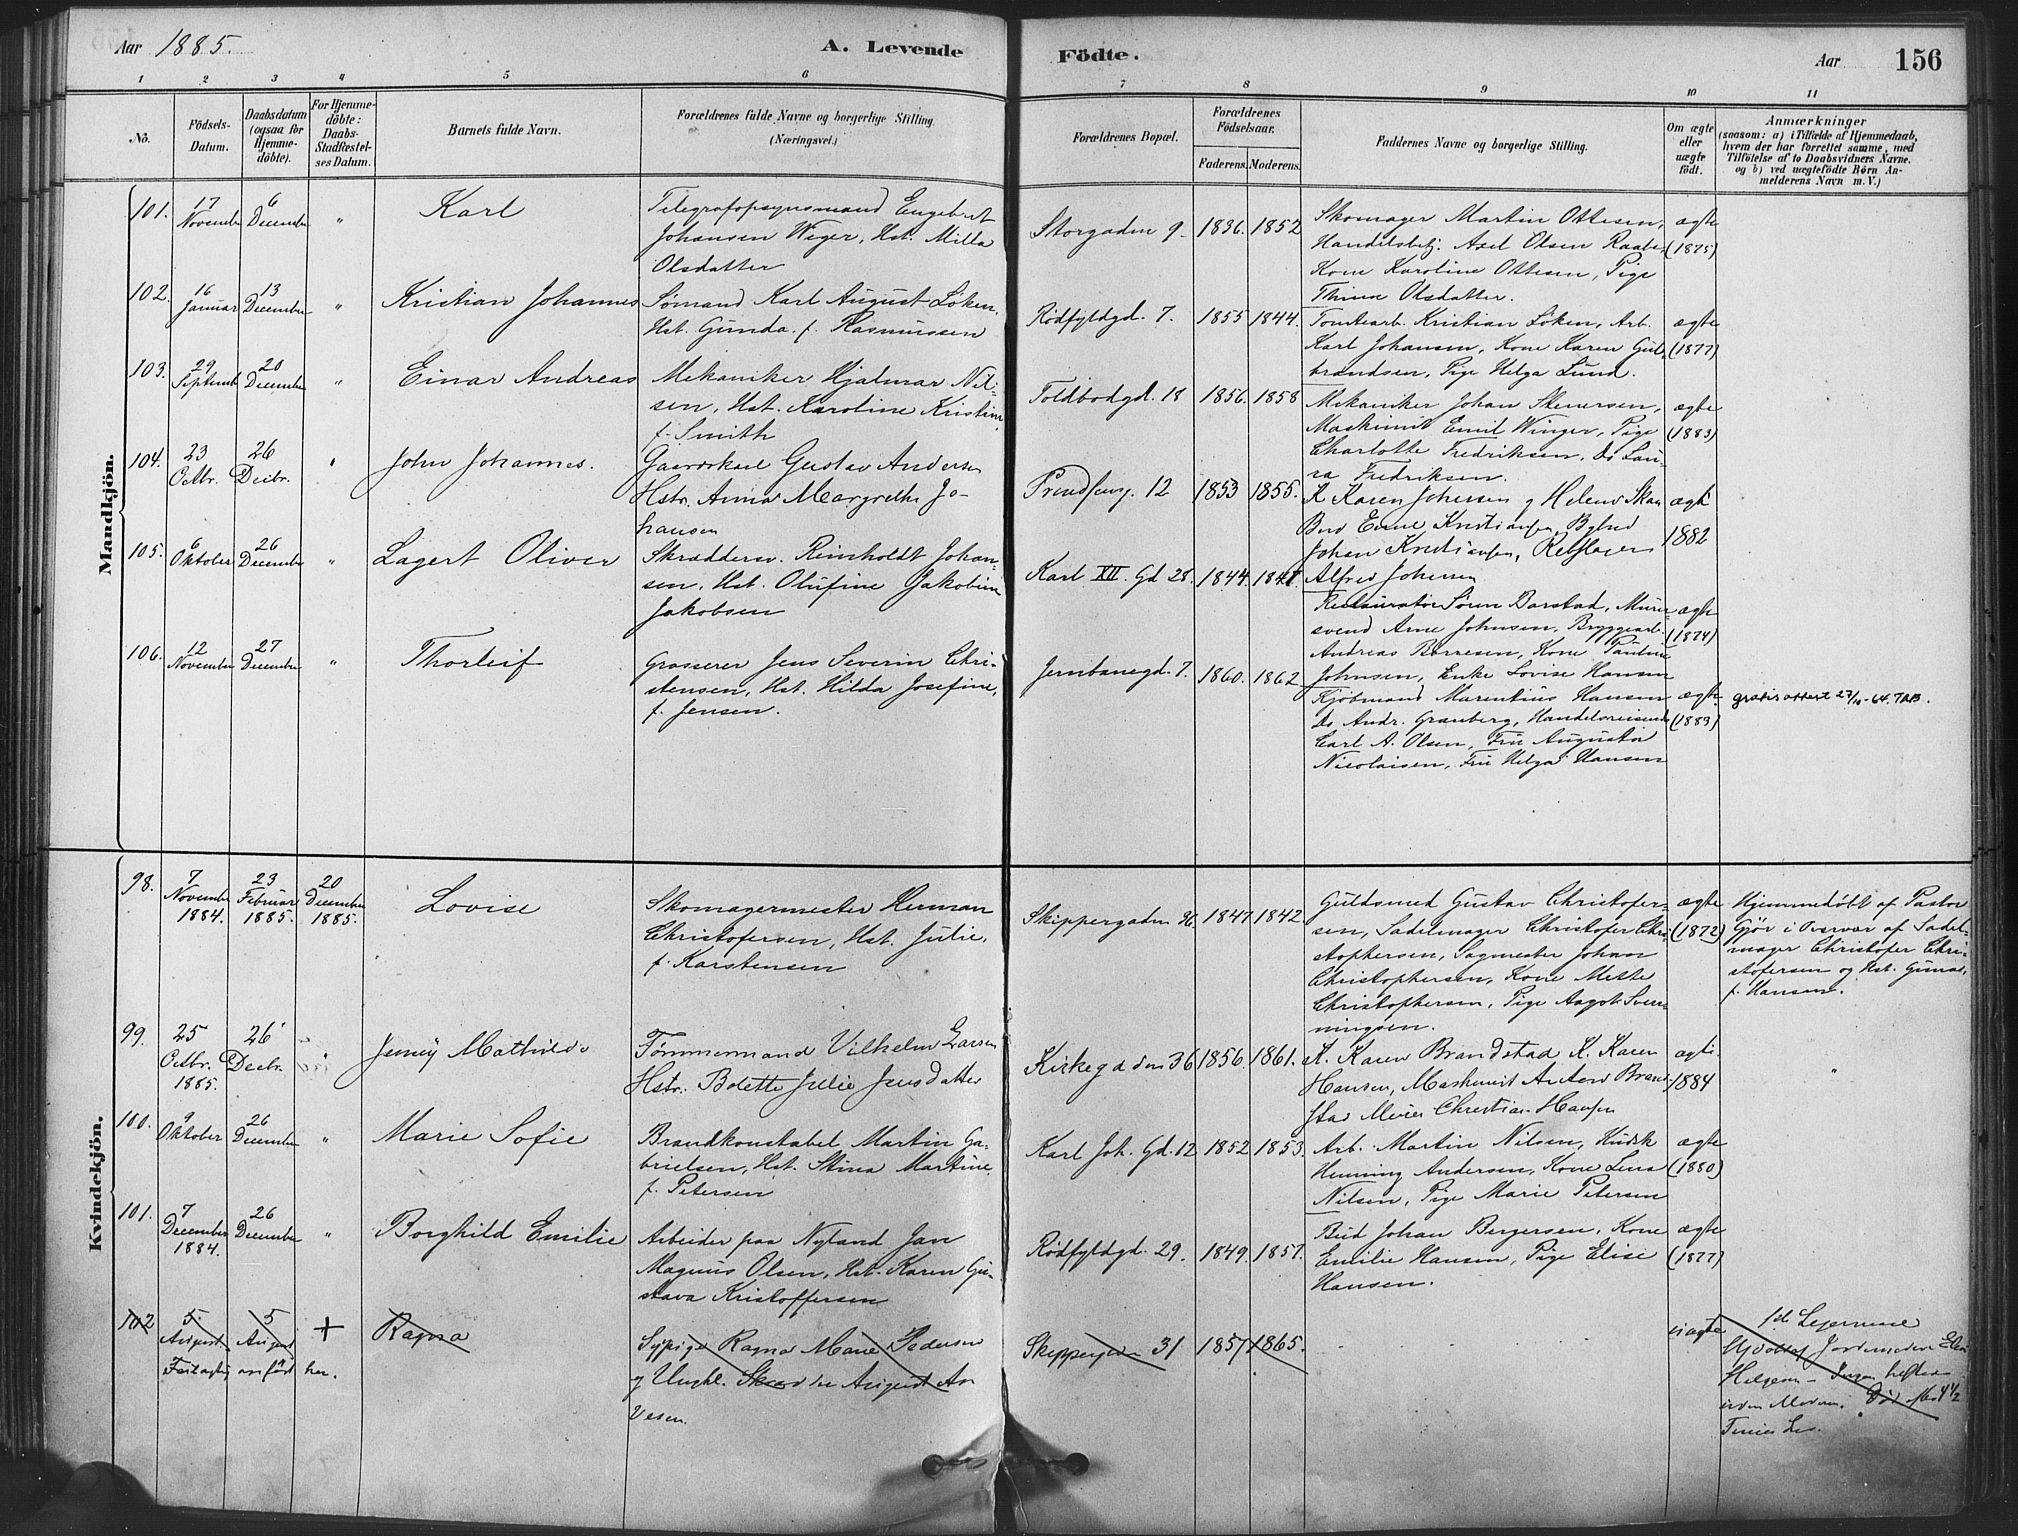 Aar 1885. A. Levende Födte. Aar 156
1 2 3 4 5 6 7 8 9 10 11
No.
Födsels-Datum.
Daabsdatum (ogsaa for Hjemme-döbte).
For Hjemme-döbte: Daabs-Stadfæstel-ses Datum.
Barnets fulde Navn.
Forældrenes fulde Navne og borgerlige Stilling.
(Næringsvei.)
Forældrenes Bopæl.
Forældrenes Födselsaar.
Faderens. Moderens.
Faddernes Navne og borgerlige Stilling.
Om ægte eller uægte födt.
Anmærkninger
(saasom: a) i Tilfælde af Hjemmedaab,
hvem der har forrettet samme, med
Tilföielse af to Daabsvidners Navne.
og b) ved uægtefödte Börn An-
melderens Navn m. V.)
Mandkjön.
101. 17 November 6 December " Karl
Telegrafopsynsmand Engebret
Johansen Weger, Hst. Milla
Olsdatter
Storgaden 9. 1836. 1852
Skomager Martin Ottesen,
Handelsbetj. Axel Olsen Raabe,
Kone Karoline Ottesen, Pige
Thina Olsdatter.
ægte (1875)
102. 16 Januar 13 December " Kristian Johannes
Sømand Karl August Löken,
Hst. Gunda f. Rasmussen
Rødfyldgd. 7. 1855 1844.
Tomtearb. Kristian Löken, Arb.
Karl Johansen, Kone Karen Gul-
brandsen, Pige Helga Lund.
ægte (1877)
103. 29 Septemb 20 December " Einar Andreas
Mekaniker Hjalmar Nil-
sen, Hst. Karoline Kristine
f. Smith
Toldbodgd. 18 1856. 1858
Mekaniker Johan Stenersen,
Maskinist Emil Winger, Pige
Charlotte Fredriksen, Do Lau-
ra Fredriksen.
ægte (1883)
104. 23 Octbr. 26 Decbr. " John Johannes.
Gaardskarl Gustav Andersen
Hstr. Anna Margrethe Jo-
hansen
12 1853 1855.
K Karen Johnsen og Helene
Johan Kristiansen, Rebslager
Alfred Johnsen
ægte 1882
105. 6 Oktober 26 December " Lagert Oliver
Skræddersv. Reinholdt Johan-
sen, Hst. Olufine Jakobine
Jakobsen
Karl XII. Gd 28. 1844.
Restauratør Søren Barstad, Murer
svend Arne Johnsen, Bryggearb.
Andreas Børresen, Kone Pauline
Johnsen, Enke Lovise Hansen
ægte (1874)
106. 12 November 27 December " Thorleif
Grosserer Jens Severin Chri-
stensen, Hst. Hilda Josefine,
f. Jensen.
Jernbanegd. 7. 1860. 1862
Kjöbmand Marentius Hansen
do Andr. Granberg, Handelsreisende
Carl A. Olsen, Fru Augusta
Nicolaisen, Fru Helga Hansen
ægte (1883)
gratis attest 27/10-64.
Kvindekjön.
98. 7 November 1884. 23 Februar 1885. 20 December 1885. Lovise
Skomagermester Herman
Christofersen, Hst. Julie,
f. Karstensen
Skippergaden 1847 1842.
Guldsmed Gustav Christofer-
sen, Sadelmager Christofer Chri-
stophersen, Sagmester Johan
Christophersen, Kone Mette
Christophersen, Pige Aagot Sven-
ningsen.
ægte (1872)
Hjemmedöbt af Pastor
Gjör i Overvær af Sadel-
mager Christofer Chri-
stofersen og Hst. Gunda,
f. Hansen.
99. 25 Octbr. 1885. 26 Decbr. " Jenny Mathilde
Tømmermand Vilhelm Larsen
Hstr. Bolette Julie Jensdatter
Kirkegaden 36 1856. 1861.
K. Karen Brandstad, K. Karen
Hansen, Maskinist Anton Brand-
stad Christian Hansen
ægte 1884 "
100. 9 Oktober 26 December " Marie Sofie
Brandkonstabel Martin Ga-
brielsen, Hst. Stina Martine,
f. Petersen
Karl Joh. Gd. 12 1852 1853.
Arb. Martin Nilsen, Kudsk
Henning Andersen, Kone Lena
Nilsen, Pige Marie Petersen
ægte (1880)
101. 7 December 1884. 26 December " Borghild Emilie
Arbeider paa Nyland Jan
Magnus Olsen, Hst. Karen Gu-
stava Kristoffersen
Rødfyldgd. 29. 1849. 1851.
Bud Johan Bergersen, Kone
Emilie Hansen, Pige Elise
Hansen.
ægte (1877)
102 5. August 5 August + Ragna
Feilagtig anfört her.
Sypige Ragna Marie Pedersen
og Ungkl. August
Skippergaden 31 1857 1865.
uægte
1ste Leiermaal
Jordemoder
Helgesen - Ingen
uden Moderen. Død